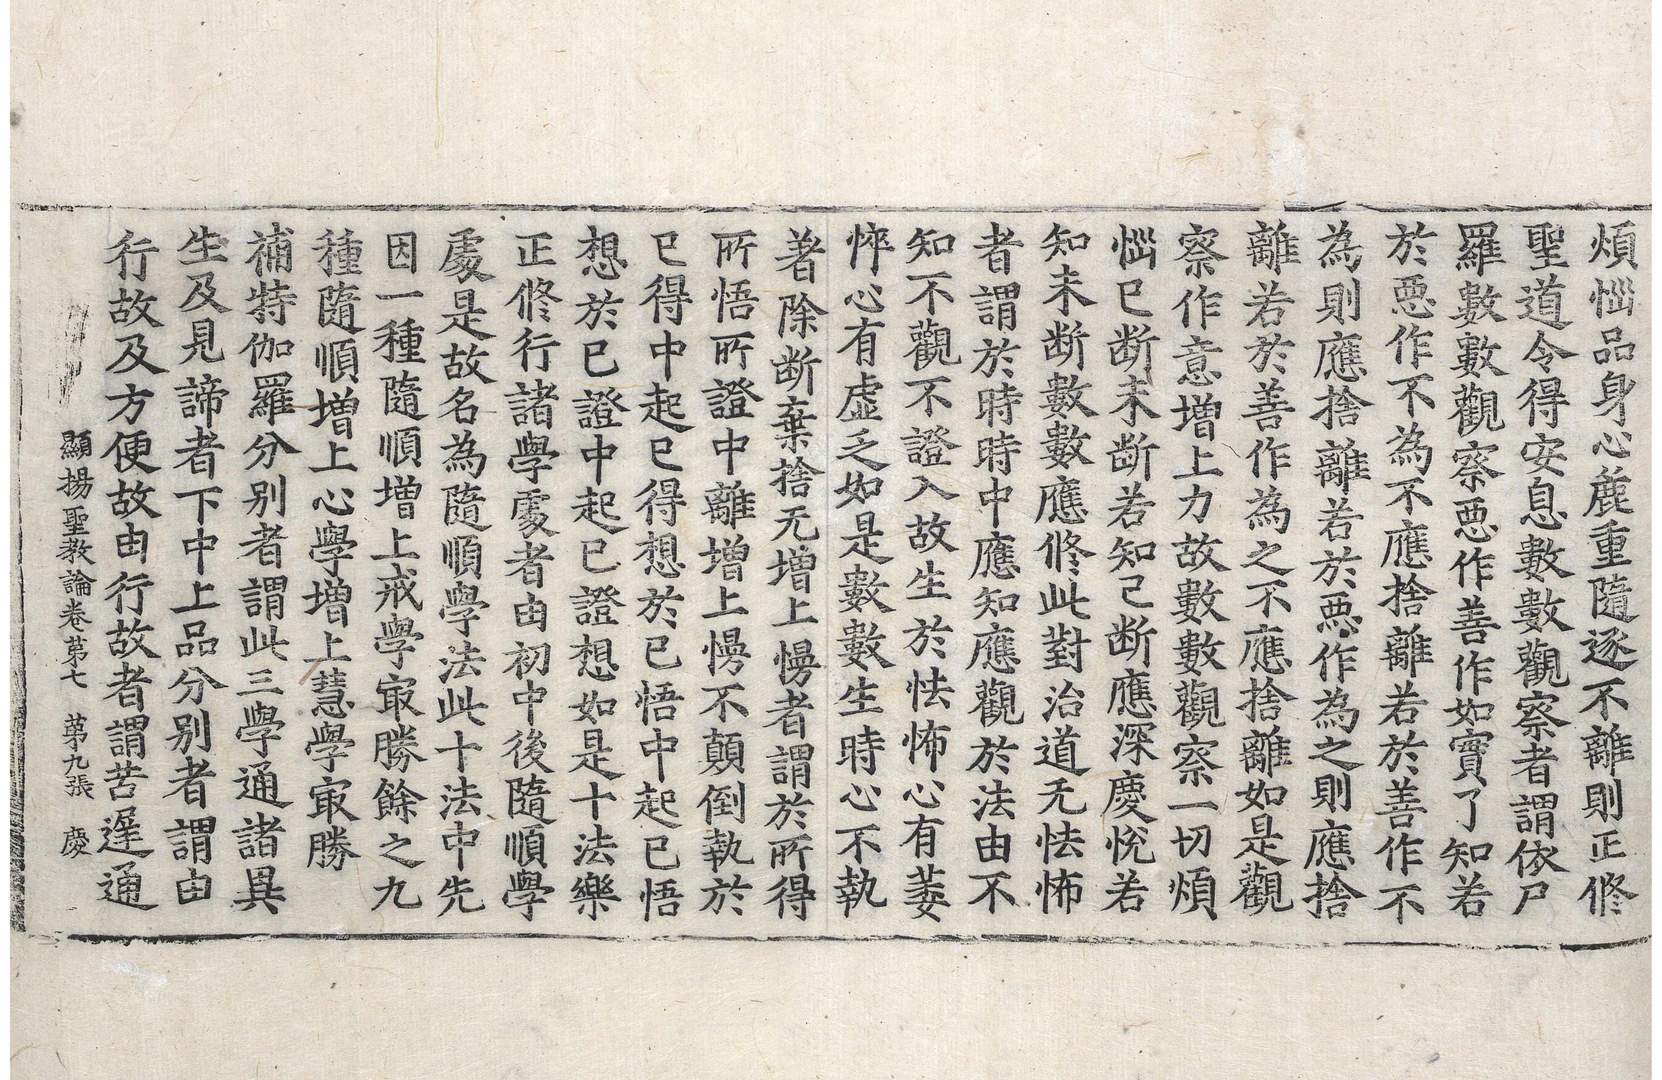 煩惱品身心麁重隨逐不離則正修
聖道令得安息數數觀察者謂依尸
羅數數觀察惡作善作如實了知若
於惡作不為不應捨離若於善作不
為則應捨離若於惡作為之則應捨
離若於善作為之不應捨離如是觀
察作意增上力故數數觀察一切煩
惱已斷未斷若知已斷應深慶悅若
知未斷數數應修此對治道无怯怖
者謂於時時中應知應觀於法由不
知不觀不證入故生於怯怖心有萎
悴心有虛乏如是數數生時心不執
著除斷棄捨无增上慢者謂於所得
所悟所證中離增上慢不顛倒執於
已得中起已得想於已悟中起已悟
想於已證中起已證想如是十法樂
正修行諸學處者由初中後隨順學
處是故名為隨順學法此十法中先
因一種隨順增上戒學㝡勝餘之九
種隨順增上心學增上慧學㝡勝
補特伽羅分別者謂此三學通諸異
生及見諦者下中上品分別者謂由
行故及方便故由行故者謂苦遲通
顯揚聖教論卷第七　第九張　慶